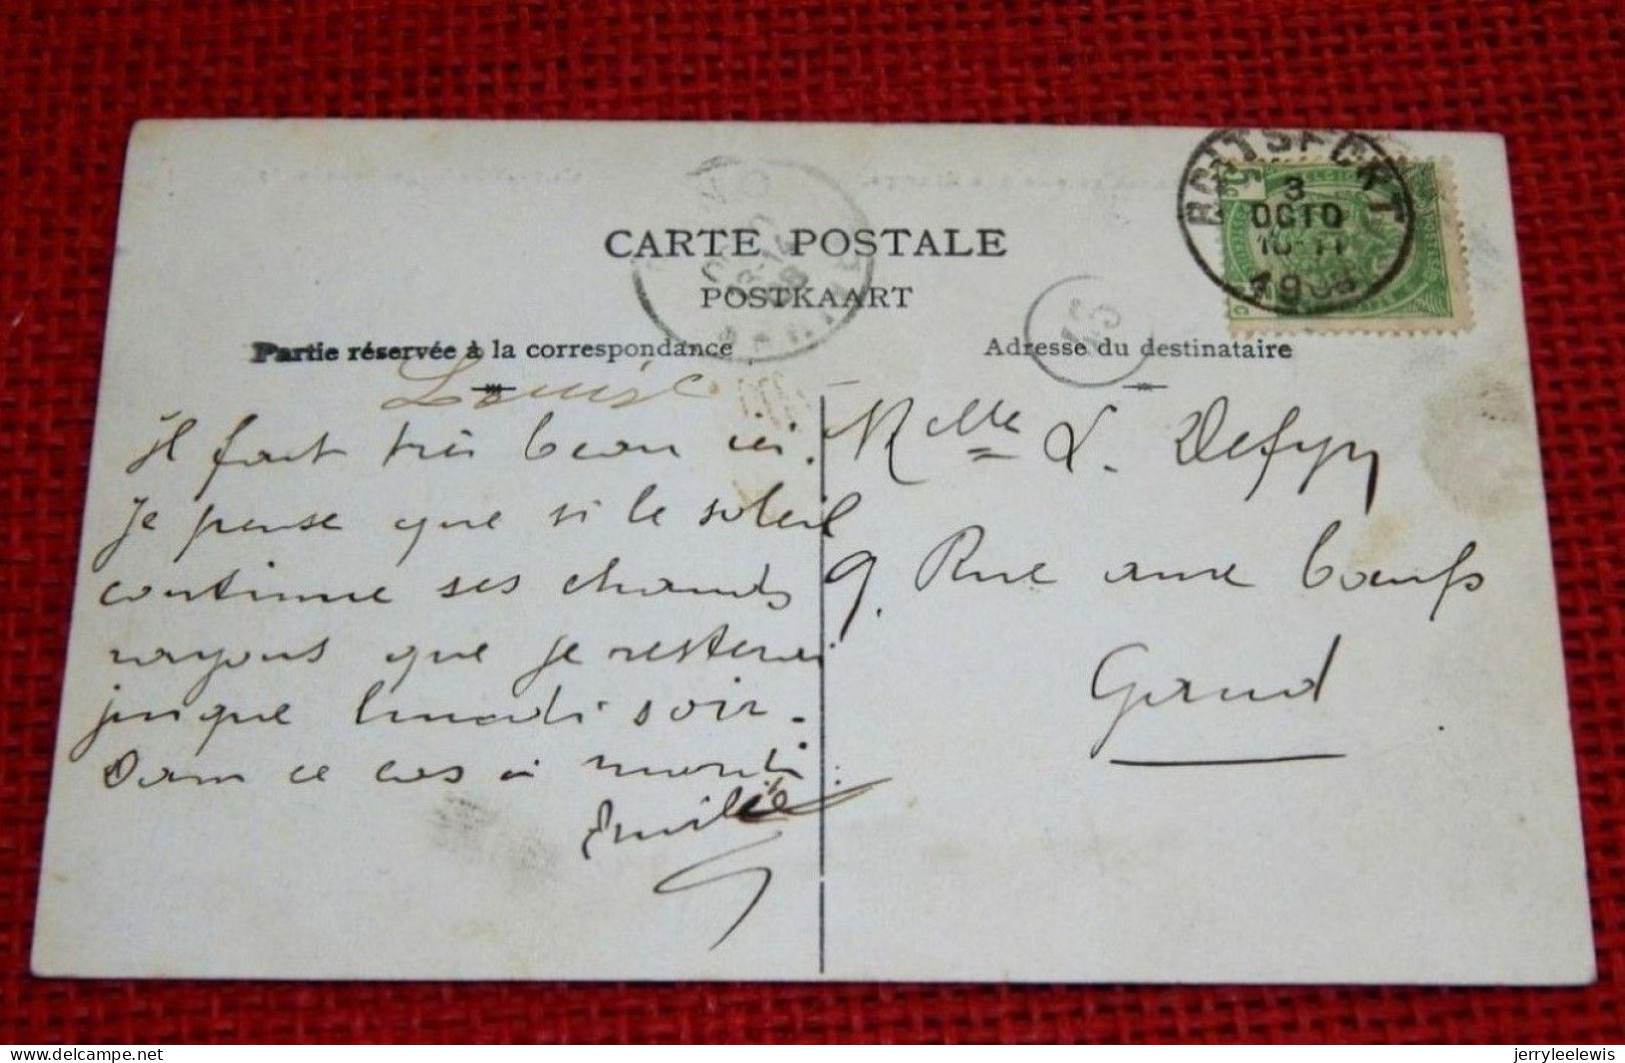 CARTE POSTALE
POSTKAART
Partie réservée à la correspondance
Adresse du destinataire
BOITSFORT
3
OCTO
10-11
15
Louise
Il fait très beau ici.
Je pense que si le soleil
continue ses chauds
rayons que je resterai
jusque lundi soir.
Dans ce cas à mardi.
Emilie
Melle L. Defyn
9. Rue aux bœufs
Gand
jerryleelewis